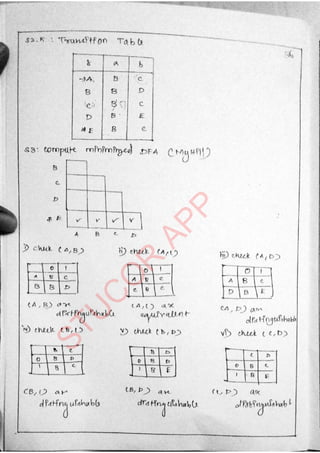 S2.K : Transition Table
δ a b
→A B C
B B D
C B C
D B E
*E B C
S3: compute minimized DFA (Myhill)
B
C
D
*E ✓ ✓ ✓ ✓
A B C D
i) check (A,B) ii) check (A,C) iii) check (A,D)
0 1 0 1 0 1
A B C A B C A B C
B B D C B C D B E
(A,B) are distinguishable
(A,C) are equivalent
(A,D) are distinguishable
iv) check (B,C) v) check (B,D) vi) check (C,D)
B C B D C D
0 B B 0 B B
1 1 D E 1
(B,C) are distinguishable
(B,D) are distinguishable
(C,D) are distinguishable
STUCOR APP